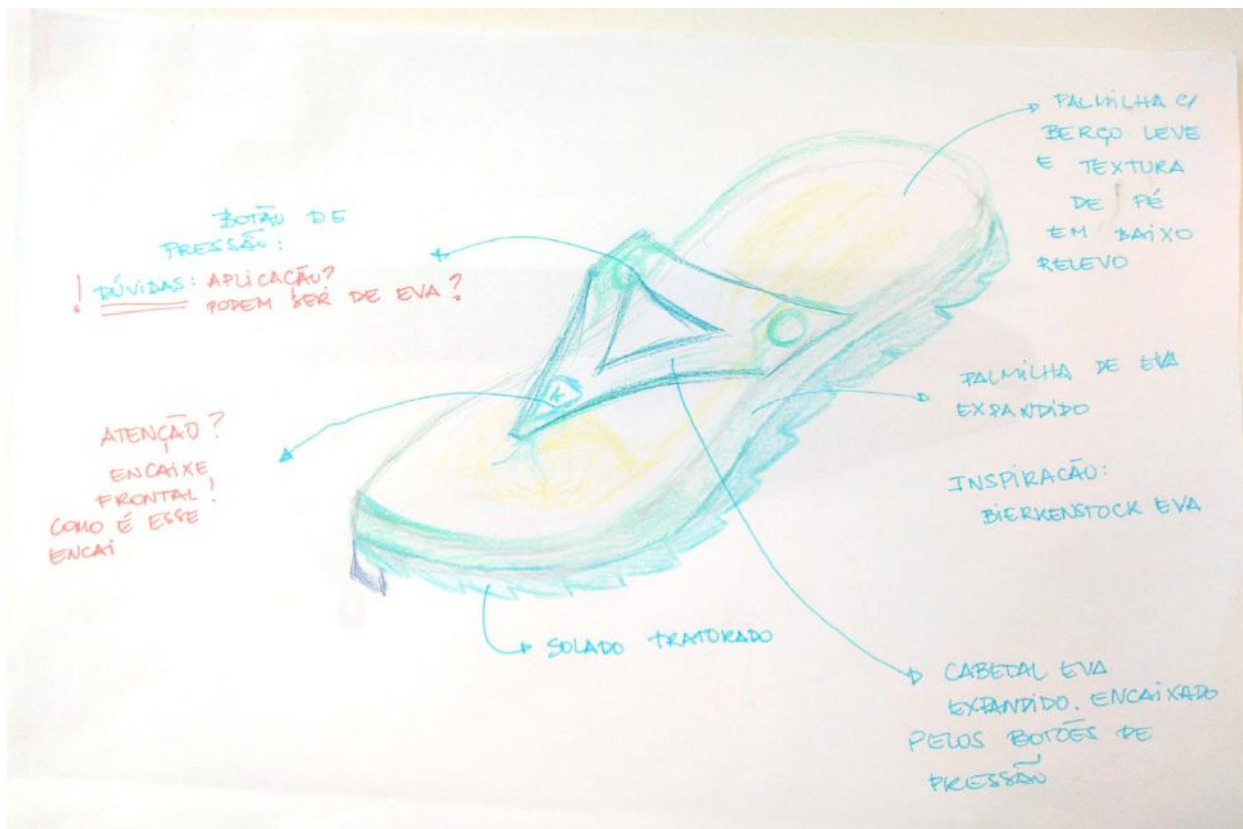 BOTÃO DE
PRESSÃO:
! DÚVIDAS: APLICAÇÃO?
PODEM SER DE EVA?
ATENÇÃO?
ENCAIXE
FRONTAL!
COMO É ESSE
ENCAI
K
SOLADO TRATORADO
PALMILHA C/
BERÇO LEVE
E TEXTURA
DE PÉ
EM BAIXO
RELEVO
PALMILHA DE EVA
EXPANDIDO
INSPIRAÇÃO:
BIERKENSTOCK EVA
CABEDAL EVA
EXPANDIDO. ENCAIXADO
PELOS BOTÕES DE
PRESSÃO